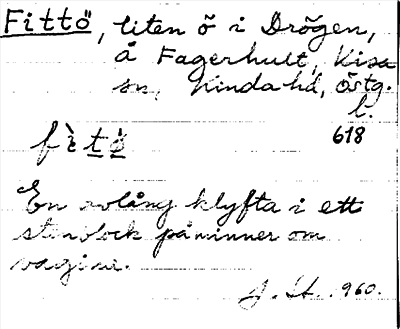 Fittö, liten ö i Drögen,
å Fagerhult, Kisa
sn, Kinda hd, Östg.
l.
618
En avlång klyfta i ett
stenblock påminner om
vagina.
J. St. 1960.